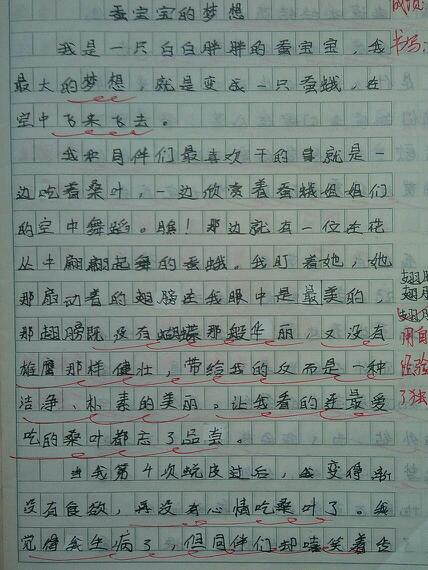 蚕宝宝的梦想
我是一只白白胖胖的蚕宝宝，我
书写：
最大的梦想，就是变成一只蚕蛾，在
空中飞来飞去。
我和同伴们最喜欢干的事就是一
边吃着桑叶，一边欣赏着蚕蛾姐姐们
的空中舞蹈。瞧！那边就有一位在花
丛中翩翩起舞的蚕蛾。我盯着她，她
那扇动着的翅膀在我眼中是最美的
那翅膀既没有蝴蝶那般华丽，又没有
用自
雄鹰那样健壮，带给我的反而是一种
洁净、朴素的美丽。让我看的连最爱
了独
吃的桑叶都忘了品尝。
当我第4次蜕皮过后，我变得渐
没有食欲，再没有心情吃桑叶了。我
觉得我生病了，但同伴们却嘻笑着告